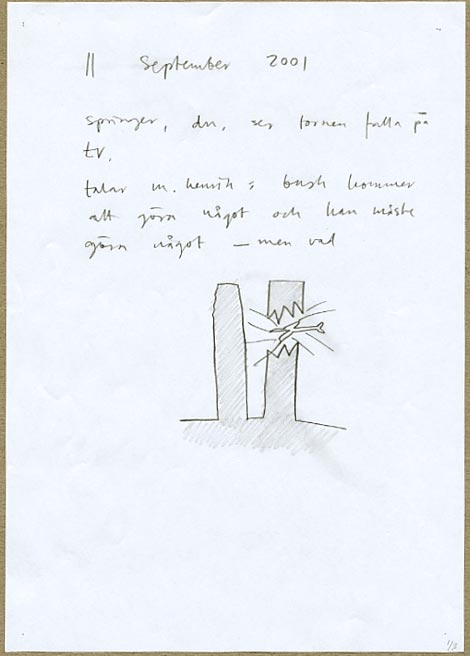 11 September 2001
springer, du, ser tornen falla på
tv.
talar m. henrik : bush kommer
att göra något och han måste
göra något – men vad
1/3